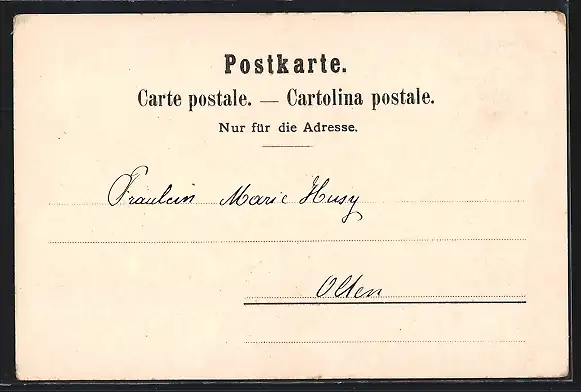 Postkarte.
Carte postale. — Cartolina postale.
Nur für die Adresse.
Fräulein Marie Husy
Olten